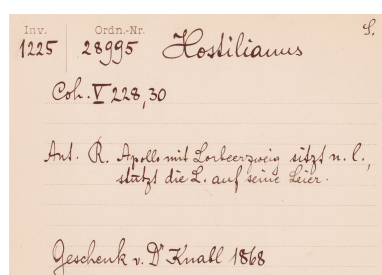 Inv. Ordn.-Nr. S.
1225 28995 Hostilianus
Coh. V 228,30
Ant. R. Apollo mit Lorbeerzweig sitzt n. l.,
stützt die L. auf seine Leier.
Geschenk v. Dr Knabl 1868